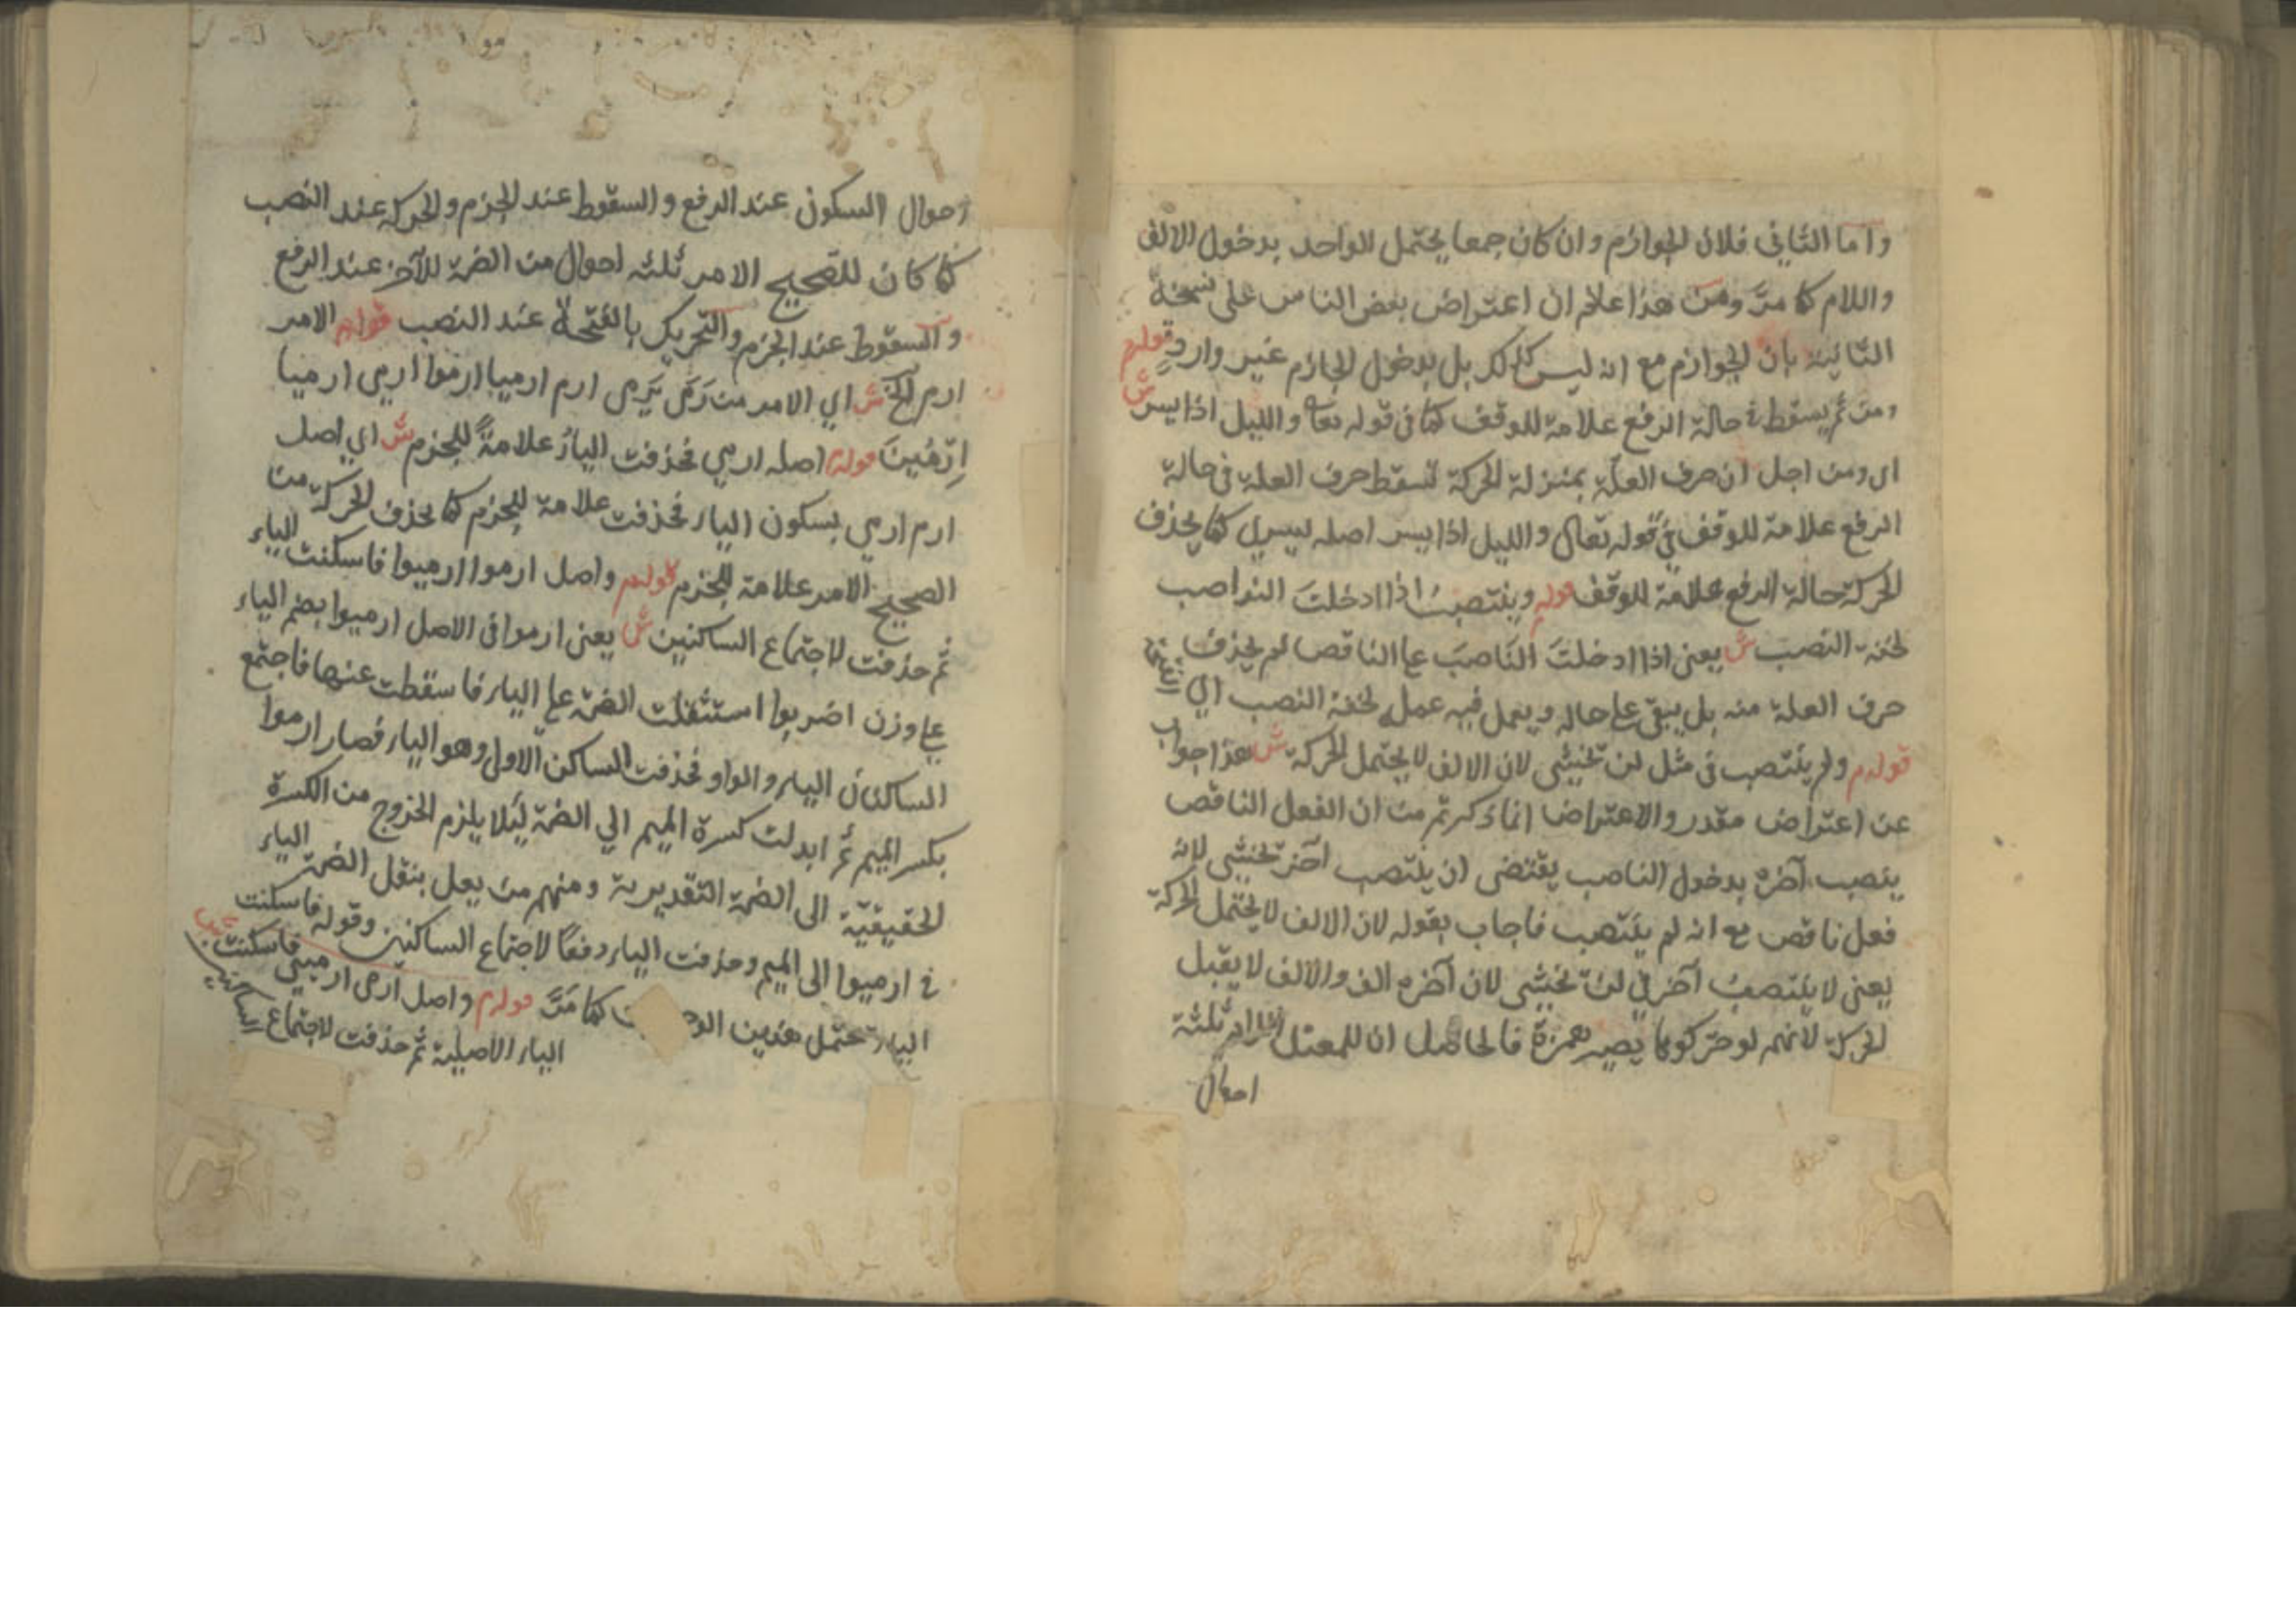 واما الثاني فلان الجوازم وان كان جمعا يحتمل الواحد بدخول الالف
واللام كما مرّ ومن هذا علم ان اعتراض بعض الناس على نسخة
الثانية بان الجوازم مع انه ليس كذلك بل بدخول الجازم غير وارد قوله
ومن ثم يسقط في حالة الرفع علامة للوقف كما في قوله تعا والليل اذا يسر ش
اى ومن اجل ان حرف العلّة بمنزلة الحركة تسقط حرف العلة في حالة
الرفع علامة للوقف في قوله تعالى والليل اذا يسر اصله يسرى كما يحذف
الحركة حالة الرفع علامة للوقف قوله وينتصب اذا ادخلت النواصب
لخفة النصب ش يعنى اذا ادخلتَ الناصبَ على الناقص لم يحذف
حرف العلة منه بل يبقى على حاله ويعمل فيه عمله لخفة النصب اي
قوله ولم ينتصب في مثل لن تخشى لان الالف لا يحتمل الحركة ش هذا جواب
عن اعتراض مقدر والاعتراض انما ذكرتم من ان الفعل الناقص
ينصب آخره بدخول الناصب يقتضى ان ينتصب آخر تخشى لانه
فعل ناقص مع انه لم ينتصب فاجاب بقوله لان الالف لا يحتمل الحركة
يعنى لا ينتصب آخر في لن تخشى لان آخره الف والالف لا يقبل
الحركة لانهم لو حركوها يصير همزة فالحاصل ان للمعتل اللام ثلثة
احوال
احوال السكون عند الرفع والسقوط عند الجزم والحركة عند النصب
كما كان للصحيح الامر ثلثة احوال من الضمة للآخر عند الرفع
والسقوط عند الجزم والتحريك بالفتحة عند النصب قوله الامر
ارم الخ ش اي الامر من رَمَى يَرمى ارم ارميا ارموا ارمى ارميا
اِرْمِينَ قوله اصله ارمي فحذفت الياءُ علامةً للجزم ش اي اصل
ارم ارمي بسكون الياء فحذفت علامة للجزم كما تحذف الحركة من
الصحيح الامر علامة للجزم قوله واصل ارموا ارميوا فاسكنت الياء
ثم حذفت لاجتماع الساكنين ش يعنى ارموا في الاصل ارميوا بضم الياء
على وزن اضربوا استثقلت الضمة على الياء فاسقطت عنها فاجتمع
الساكنان الياء والواو فحذفت الساكن الاول وهو الياء فصار ارموا
بكسر الميم ثم ابدلت كسرة الميم الي الضمة ليلا يلزم الخروج من الكسرة
الحقيقيّة الى الضمة التقديرية ومنهم من يعل بنقل الضمة الياء
في ارميوا الى الميم وحذفت الياء دفعًا لاجتماع الساكنين وقوله فاسكنت
الياء تحتمل هذين كما مَرَّ قوله واصل ارمى ارميي فاسكنت
الياء الاصلية ثم حذفت لاجتماع الساكنين ش